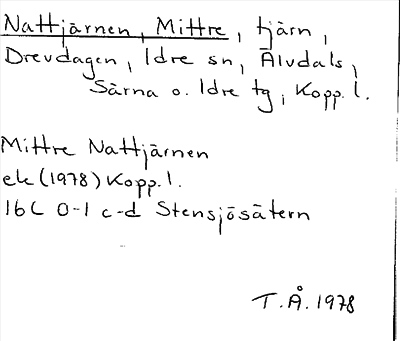 Nattjärnen, Mittre, tjärn,
Drevdagen, Idre sn, Älvdals,
Särna o. Idre tg, Kopp. l.
Mittre Nattjärnen
ek (1978) Kopp. l.
16C 0-1 c-d Stensjösätern
T.Å. 1978